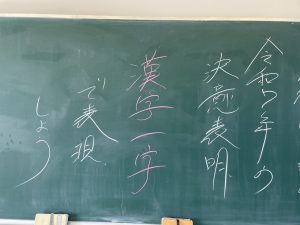 令和7年の
決意表明
漢字一字
で表現
しよう